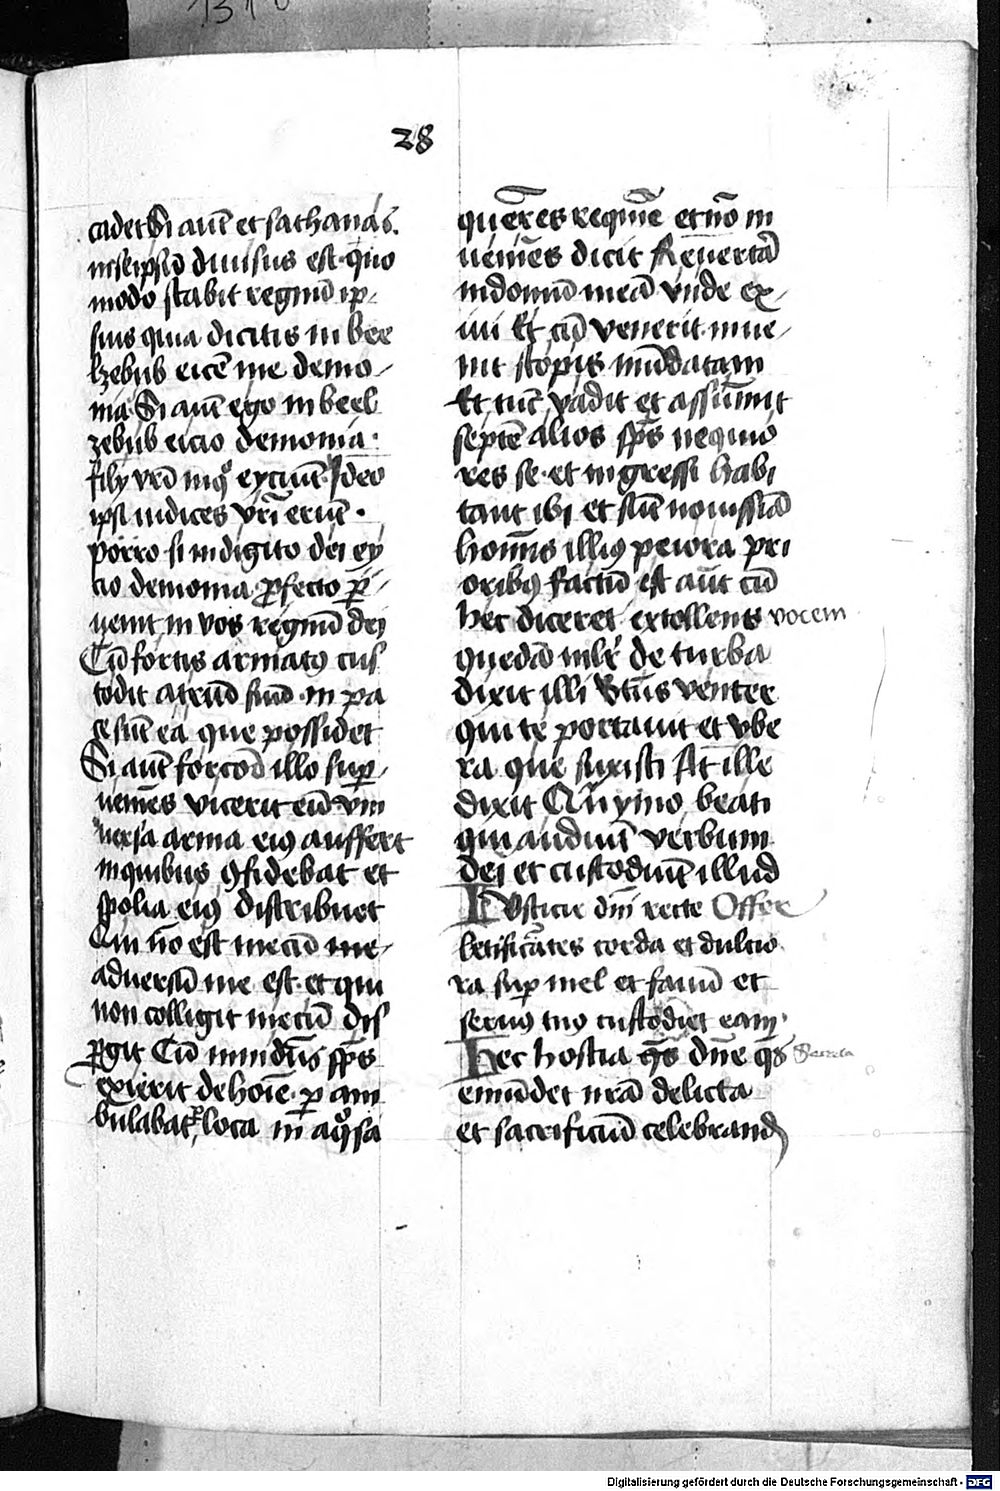 1310
28
cadet Si autē et sathanas.
in seipsū diuisus est quo
modo stabit regnū ip-
sius quia dicitis in bee
lzebub eicē me demo-
nia Si autē ego in beel
zebub eicio demonia.
filÿ vrī in qͦ eyciūt Ideo
ipsi iudices vr̄i erūt.
Porro si in digito dei ey
cio demonia ꝓfecto p̄-
uenit in vos regnū dei
Cū fortis armatꝰ cus
todit atriū suū in pa
ce sūt ea que possidet
Si autē forcōr illo suꝑ-
ueniēs vicerit eū vni
uersa arma eiꝰ auffert
in quibus ꝯfidebat et
spolia eiꝰ distribuet
Qui nō est mecū me-
aduersū me est et qui
non colligit mecū dis
ꝑgit Cū immūdꝰ sp̄s
exierit de hoīe ꝑ am
bulabat loca in aqͦsa
querēs requiē et nō in
ueniēs dicit Reuertar̄
in domū meā vnde ex-
iui Et cū venerit inue-
nit scopis mūdatam
Et tūc vadit et assūmit
septē alios sp̄s nequio
res se et ingressi habi
tant ibi et sūt nouissīa
homīs illiꝰ peiora pri
oribꝰ factū est aūt cū
hec diceret extollens vocem
quedā mlr̄ de turba
dixit illi Btūs venter
qui te portauit et vbe
ra que suxisti At ille
dixit Qūymo beati
qui audiūt verbum
dei et custodiūt illud
Iusticie dn̄i recte Offer
letificātes corda et dulcio
ra suꝑ mel et fauū et
seruꝰ tuꝰ custodiet eam
Hec hostia qs̄ dn̄e qs̄ Secreta
emūdet nrā delicta
et sacrificiū celebrand
Digitalisierung gefördert durch die Deutsche Forschungsgemeinschaft - DFG